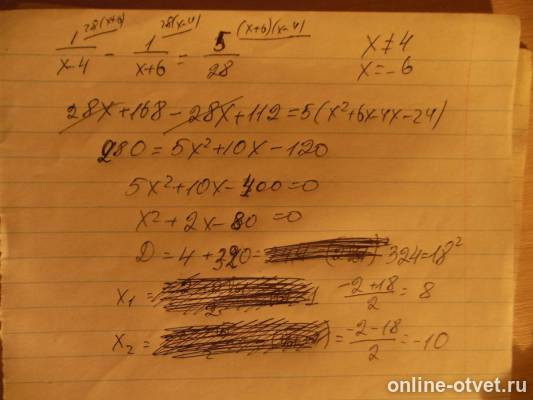 1^28(x+6) / x-4 - 1^28(x-4) / x+6 = 5^(x+6)(x-4) / 28 x≠4
x=-6
28x+168-28x+112=5(x²+6x-4x-24)
280=5x²+10x-120
5x²+10x-400=0
x²+2x-80=0
D=4+320= 324=18²
x₁= -2+18 / 2 = 8
x₂= = -2-18 / 2 = -10
online-otvet.ru